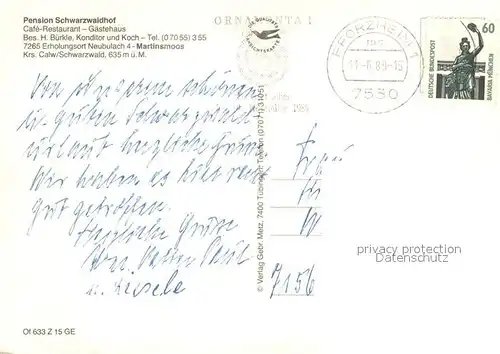 Pension Schwarzwaldhof
Café-Restaurant – Gästehaus
Bes. H. Bürkle, Konditor und Koch – Tel. (07055) 355
7265 Erholungsort Neubulach 4 - Martinsmoos
Krs. Calw/Schwarzwald, 635 m ü. M.
ORNAMENTA I
PFORZHEIM 1
11.-6.89-15
7530
60
DEUTSCHE BUNDESPOST
BAVARIA MÜNCHEN
Von unserem schönen
Schwarzwald
urlaub herzliche Grüße
Wir haben es hier
gut getroffen.
Herzliche Grüße
Paul
u.
Frau
7156
© Verlag Gebr. Metz, 7400 Tübingen, Telefon (07071) 31051
privacy protection
Datenschutz
Of 633 Z 15 GE